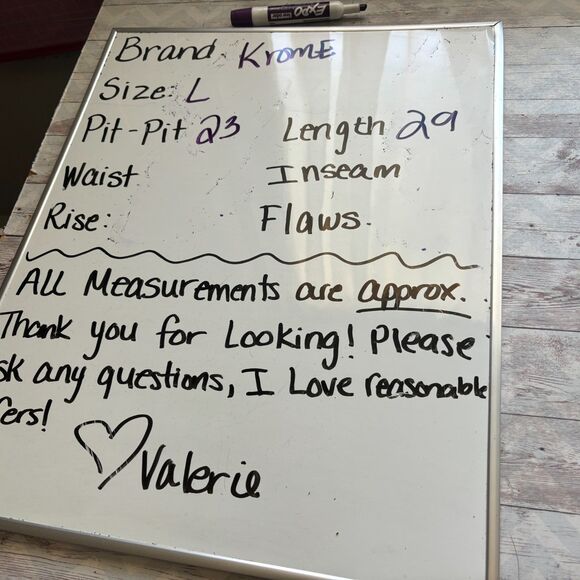 EXPO
Brand: KromE
Size: L
Pit-Pit 23 Length 29
Waist Inseam
Rise: Flaws.
All Measurements are approx.
Thank you for Looking! Please
sk any questions, I Love reasonable
fers!
Valerie